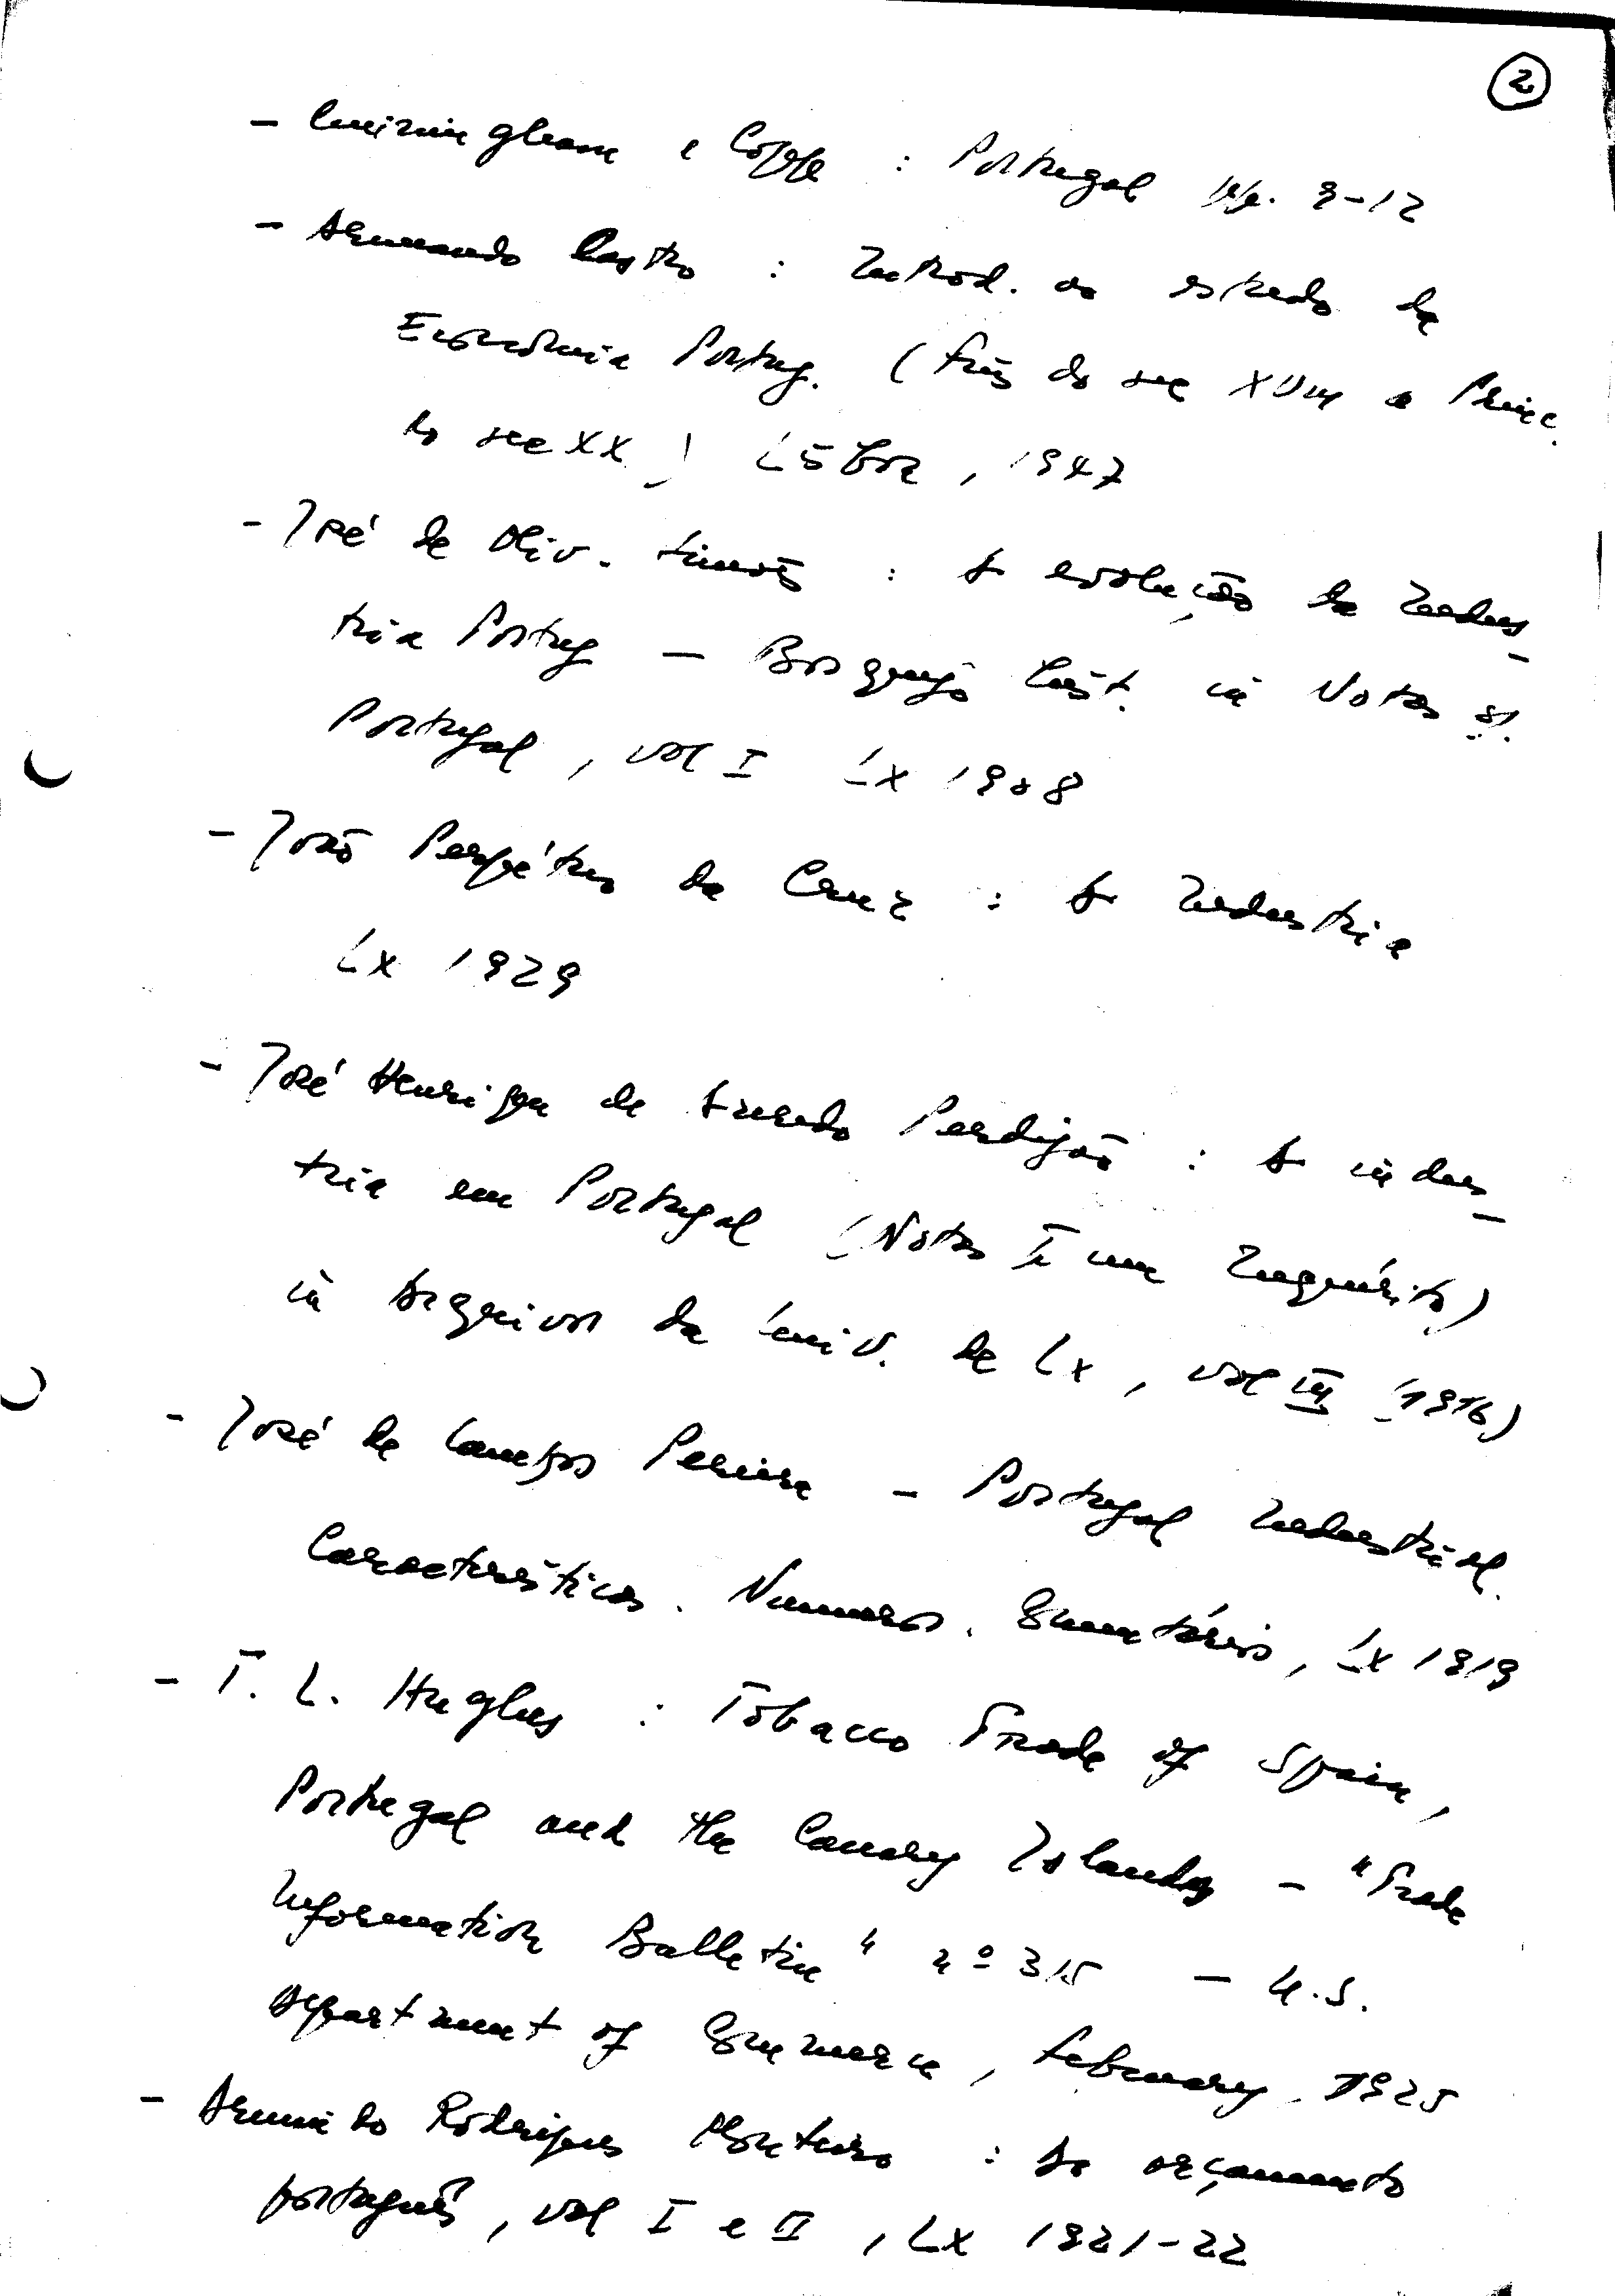 2
- Cunningham e Cople : Portugal pp. 9-12
- Armando Castro : Introd. ao estudo da
Economia Portug. (fins do sec XVIII a Princ.
do sec XX) Lisboa, 1947
- José de Oliv. Simões : A evolução da Indus
tria Portug - Bosquejo hist. in Notas s/.
Portugal, vol I Lx 1908
- João Perpétuo da Cruz : A Industria
Lx 1929
- José Henrique de Azeredo Perdigão : A indus
tria em Portugal (Notas p/ um Inquérito)
in Arquivos da Univ. de Lx, vol III (1916)
- José de Campos Pereira - Portugal Industrial.
Caracteristicas. Numeros. Comentários, Lx 1919
- T. L. Hughes : Tobacco Trade of Spain,
Portugal and the Canary Islands - "Trade
Information Bulletin" nº 315 - U.S.
Department of Commerce, February, 1925
- Armindo Rodrigues Monteiro : Do orçamento
português, vol I e II, Lx 1921-22